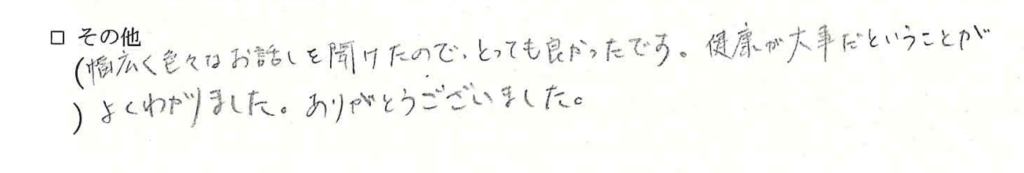 □ その他
(幅広く色々なお話しを聞けたので、とっても良かったです。健康が大事だということが
) よくわかりました。ありがとうございました。